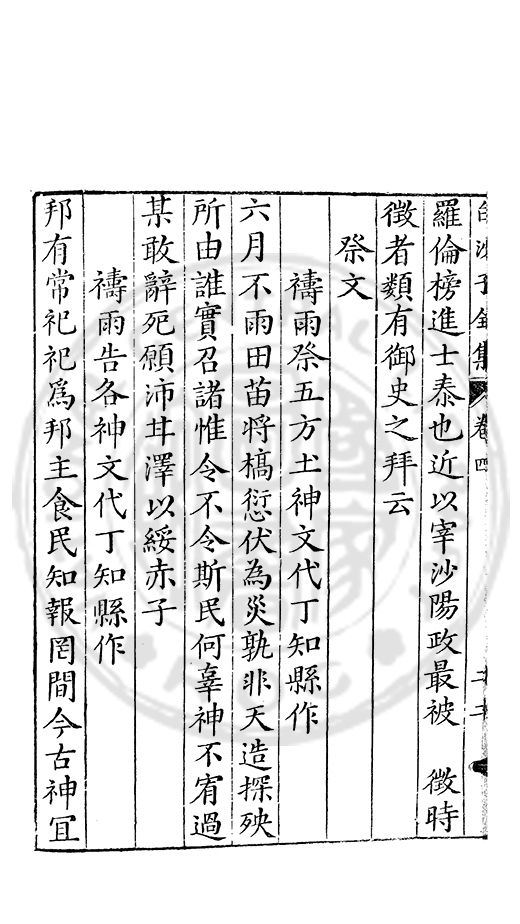 白沙子全集 卷四
羅倫榜進士泰也近以宰沙陽政最被 徵時
徵者類有御史之拜云
祭文
禱雨祭五方土神文代丁知縣作
六月不雨田苗將槁愆伏為災孰非天造探殃
所由誰實召諸惟令不令斯民何辜神不宥過
某敢辭死願沛甘澤以綏赤子
禱雨告各神文代丁知縣作
邦有常祀祀爲邦主食民知報罔間今古神冝